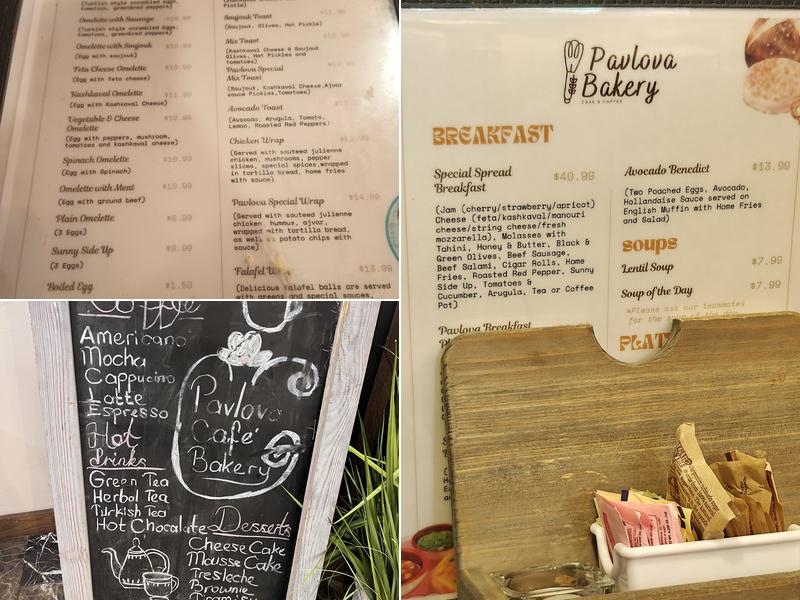 (Turkish style scrambled eggs,
tomatoes, greenbred peppers)
Omelette with Sausage
(Turkish style scrambled eggs,
tomatoes, greenbred peppers)
Omelette with Soujouk
(Egg with soujouk)
Feta Cheese Omelette $10.99
(Egg with feta cheese)
Kashkaval Omelette $11.99
(Egg with Kashkaval Cheese)
Vegetable & Cheese $12.99
Omelette
(Egg with peppers, mushroom,
tomatoes and kashkaval cheese)
Spinach Omelette $10.99
(Egg with Spinach)
Omelette with Meat $10.99
(Egg with ground beef)
Plain Omelette $9.99
(3 Eggs)
Sunny Side Up $9.99
(3 Eggs)
Boiled Egg $1.50
Pickle)
Soujouk Toast
(Soujouk, Olives, Hot Pickle)
Mix Toast
(Kashkaval Cheese & Soujouk
Olives, Hot Pickles and
tomatoes)
Pavlova Special
Mix Toast
(Soujouk, Kashkaval Cheese, Ajvar
sauce Pickles, Tomatoes)
Avocado Toast
(Avocado, Arugula, Tomato,
Lemon, Roasted Red Peppers)
Chicken Wrap
(Served with sauteed julienne
chicken, mushrooms, pepper
slices, special spices, wrapped
in tortilla bread, home fries
with sauce)
Pavlova Special Wrap $14.99
(Served with sauteed julienne
chicken hummus, ajvar,
wrapped with tortilla bread,
as well as potato chips with
sauce)
Falafel $13.99
(Delicious falafel balls are served
with greens and special sauces,
Pavlova
Bakery
CAKE & COFFEE
BREAKFAST
Special Spread $40.99
Breakfast
(Jam (cherry/strawberry/apricot)
Cheese (feta/kashkaval/manouri
cheese/string cheese/fresh
mozzarella), Molasses with
Tahini, Honey & Butter, Black &
Green Olives, Beef Sausage,
Beef Salami, Cigar Rolls, Home
Fries, Roasted Red Pepper, Sunny
Side Up, Tomatoes &
Cucumber, Arugula, Tea or Coffee
Pot)
Pavlova Breakfast
Avocado Benedict $13.99
(Two Poached Eggs, Avocado,
Hollandaise Sauce served on
English Muffin with Home Fries
and Salad)
soups
Lentil Soup $7.99
Soup of the Day $7.99
*Please ask our teammates
for the soup of the day
PLAT
Coffee
Americano
Mocha
Cappucino
Latte
Espresso
Hot
Drinks
Green Tea
Herbal Tea
Turkish Tea
Hot Chocolate
Pavlova
Café
Bakery
Desserts
Cheese Cake
Mousse Cake
Tresleche
Brownie
Tiramisu